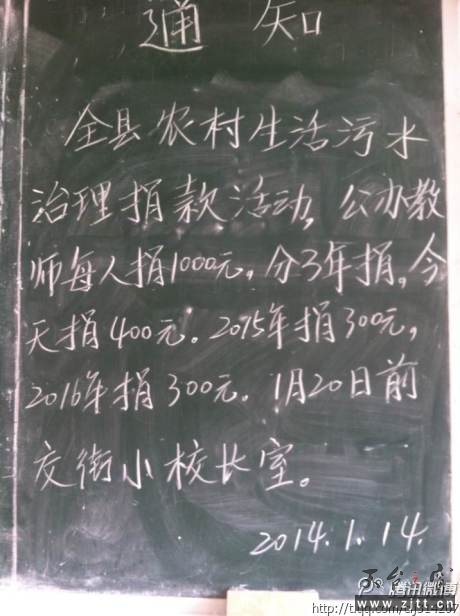 通知
全县农村生活污水
治理捐款活动,公办教
师每人捐1000元,分3年捐,今
天捐400元。2015年捐300元,
2016年捐300元。1月20日前
交街小校长室。
2014.1.14.
腾讯微博
www.zjtt.cn